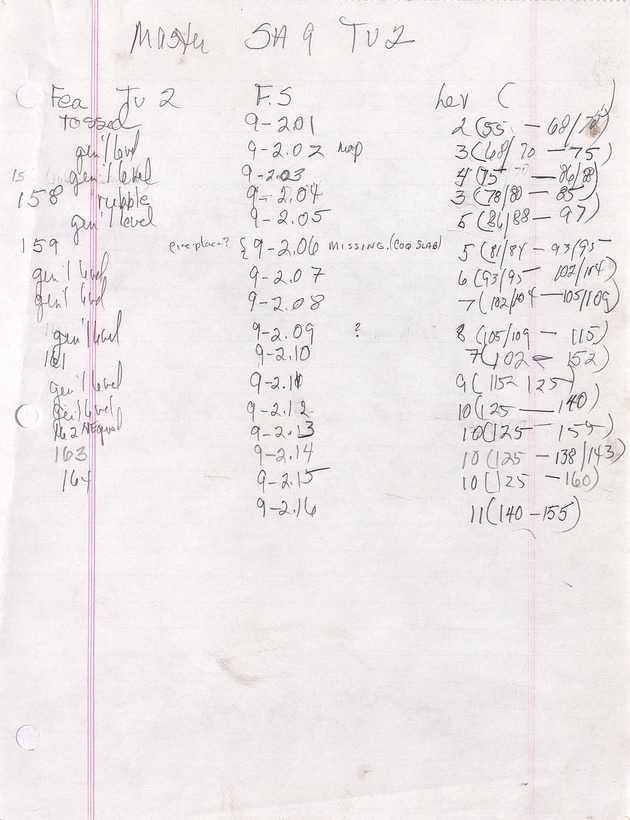 Master SA 9 TU2
Fea TU 2 F.S Lev (
tossed 9-2.01 2 (55 — 68/70)
gen'l level 9-2.02 map 3 (68/70 — 75)
gen'l level 9-2.03 4 (75 — 86/88)
158 rubble 9-2.04 3 (78/80 — 85)
gen'l level 9-2.05 5 (86/88 — 97)
159 fireplace? { 9-2.06 MISSING. (COQ SLAB) 5 (81/84 — 93/95
gen'l level 9-2.07 6 (93/95 — 102/104)
gen'l level 9-2.08 7 (102/104 — 105/109)
gen'l level 9-2.09 ? 8 (105/109 — 115)
161 9-2.10 7 (102 — 152)
gen'l level 9-2.11 9 (115 — 125)
gen'l level 9-2.12 10 (125 — 140)
162 NEquad 9-2.13 10 (125 — 155)
163 9-2.14 10 (125 — 138/143)
164 9-2.15 10 (125 — 160)
9-2.16 11 (140 — 155)